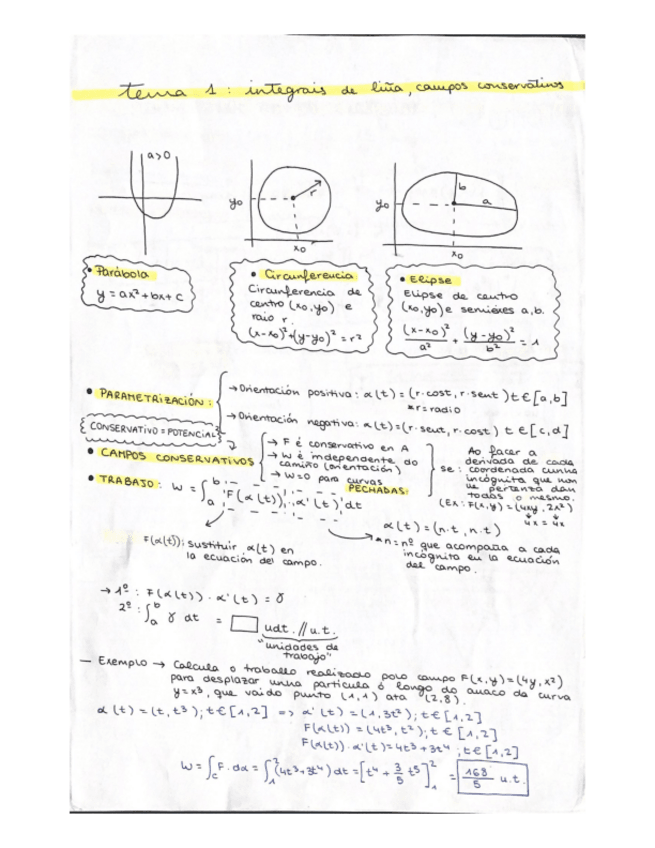 tema 1: integrais de liña, campos conservativos
a>0
y0
r
x0
y0
b
a
x0
• Parábola
y = ax² + bx + c
• Circunferencia
Circunferencia de
centro (x0, y0) e
raio r.
(x-x0)² + (y-y0)² = r²
• Elipse
Elipse de centro
(x0, y0) e semieixes a, b.
(x-x0)²/a² + (y-y0)²/b² = 1
• PARAMETRIZACIÓN:
→ Orientación positiva: α(t) = (r·cost, r·sent) t∈[a,b]
*r=radio
→ Orientación negativa: α(t) = (r·sent, r·cost) t∈[c,d]
CONSERVATIVO = POTENCIAL
• CAMPOS CONSERVATIVOS
→ F é conservativo en A
→ W é independente do
camiño (orientación)
→ W=0 para curvas
PECHADAS.
se:
Ao facer a
derivada de cada
coordenada cunha
incógnita que non
lle pertenza dan
todas o mesmo.
(Ex: F(x,y) = (4xy, 2x²)
4x = 4x
• TRABAJO: W = ∫ₐᵇ F(α(t)) · α'(t) dt
F(α(t)); sustituir α(t) en
la ecuación del campo.
α(t) = (n·t, n·t)
*n = nº que acompaña a cada
incógnita en la ecuación
del campo.
→ 1º: F(α(t)) · α'(t) = γ
2º: ∫ₐᵇ γ dt = udt. // u.t.
"unidades de
trabajo"
— Exemplo → Calcula o traballo realizado polo campo F(x,y) = (4y, x²)
para desplazar unha partícula ó longo do anaco da curva
y=x³, que vai do punto (1,1) ata (2,8).
α(t) = (t, t³); t∈[1,2] => α'(t) = (1, 3t²); t∈[1,2]
F(α(t)) = (4t³, t²); t∈[1,2]
F(α(t)) · α'(t) = 4t³ + 3t⁴; t∈[1,2]
W = ∫c F · dα = ∫₁² (4t³ + 3t⁴) dt = [t⁴ + 3/5 t⁵]₁² = 168/5 u.t.